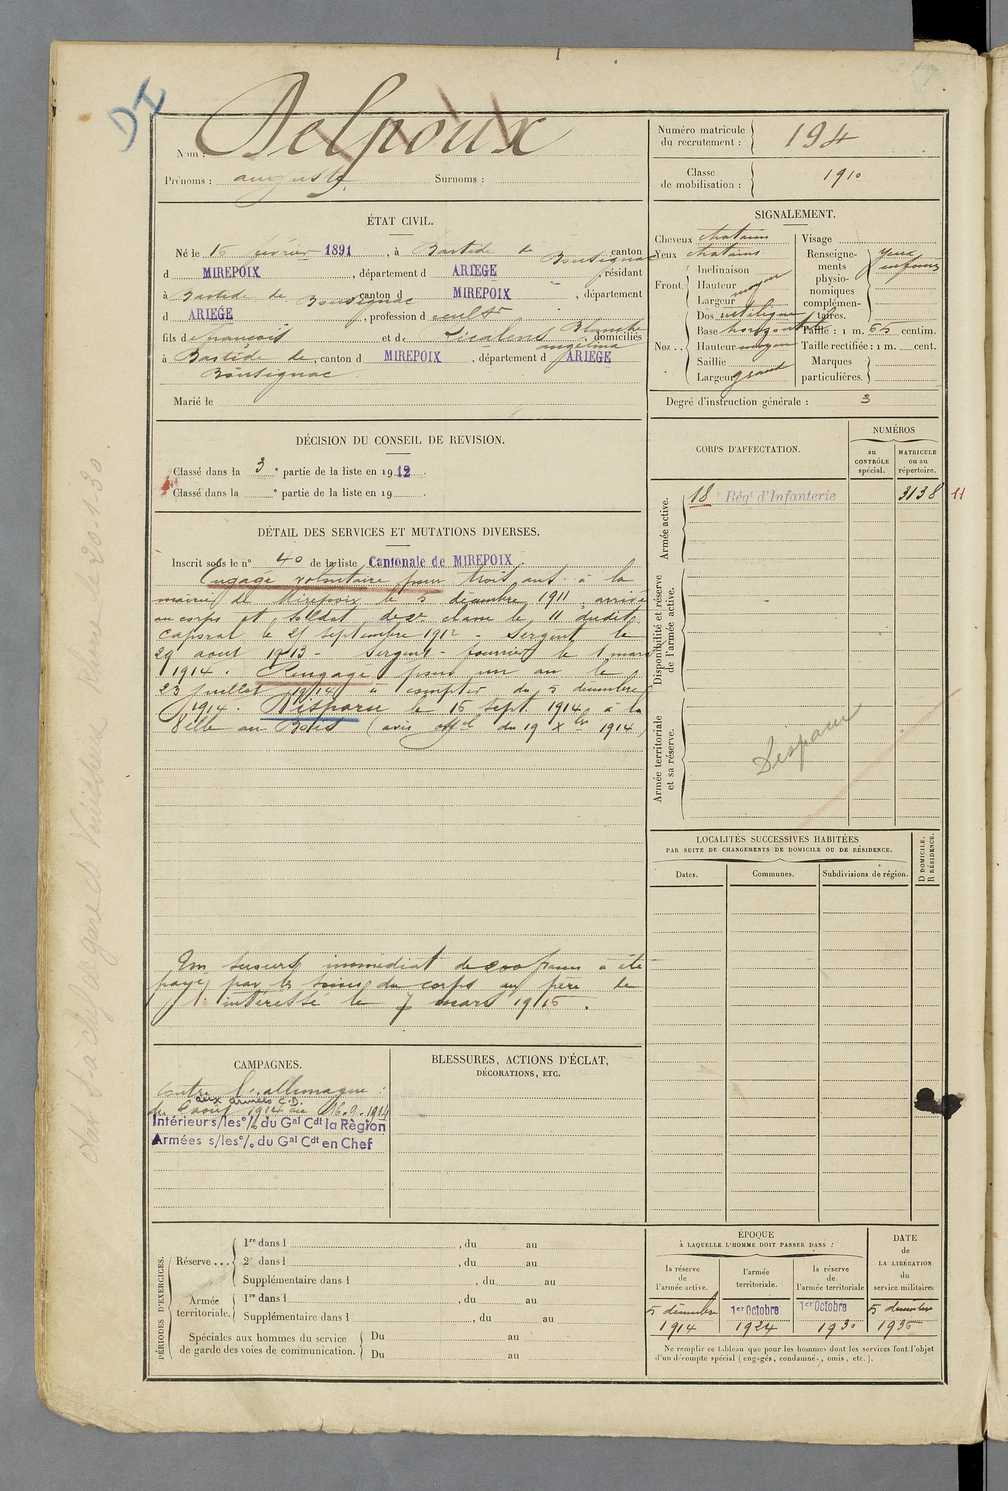 DI
Nom : Delpoux
Prénoms : auguste Surnoms :
Numéro matricule du recrutement : 194
Classe de mobilisation : 1910
ÉTAT CIVIL.
Né le 16 février 1891, à Bastide de Bousignac canton
d MIREPOIX, département d ARIEGE, résidant
à Bastide de Bousignac canton d MIREPOIX, département
d ARIEGE, profession d cultr
fils de françois et de Blanche angelina domiciliés
à Bastide de, canton d MIREPOIX, département d ARIEGE
Bousignac
Marié le
SIGNALEMENT.
Cheveux chatains
Yeux chatains
Front. Inclinaison
Hauteur moyen
Largeur
Nez .. Dos rectiligne
Base horizontale
Hauteur moyen
Saillie
Largeur grand
Visage
Renseignements physionomiques complémentaires. Yeux enfoncés
Taille : 1 m. 65 centim.
Taille rectifiée : 1 m. cent.
Marques particulières.
Degré d'instruction générale : 3
DÉCISION DU CONSEIL DE REVISION.
Classé dans la 3e partie de la liste en 1912.
Classé dans la e partie de la liste en 19 .
DÉTAIL DES SERVICES ET MUTATIONS DIVERSES.
Inscrit sous le n° 40 de la liste Cantonale de MIREPOIX
Engagé volontaire pour trois ans à la
mairie de Mirepoix le 5 décembre 1911, arrivé
au corps et soldat de 2e classe le 11 dudit
caporal le 25 septembre 1912 - Sergent le
29 aout 1913 - Sergent-fourrier le 1 mars
1914. Rengagé pour un an le
23 juillet 1914 à compter du 5 décembre
1914. Disparu le 16 sept. 1914 à la
Ville au Bois (avis offel du 19 Xbre 1914)
Un secours immédiat de francs a été
payé par les soins du corps au père de
l'intéressé le 7 mars 1915.
CORPS D'AFFECTATION.
NUMÉROS
au CONTRÔLE spécial.
MATRICULE ou au répertoire.
Armée active.
18e Régt d'Infanterie 3138 11
Disponibilité et réserve de l'armée active.
Armée territoriale et sa réserve.
Disparu
LOCALITÉS SUCCESSIVES HABITÉES
PAR SUITE DE CHANGEMENTS DE DOMICILE OU DE RÉSIDENCE.
Dates. Communes. Subdivisions de région.
D DOMICILE.
R RÉSIDENCE.
CAMPAGNES.
Contre l'allemagne :
aux armées C.D.
du 2 aout 1914 au 16.9.1914
Intérieur s/les o/o du Gal Cdt la Règion
Armées s/les o/o du Gal Cdt en Chef
BLESSURES, ACTIONS D'ÉCLAT,
DÉCORATIONS, ETC.
PÉRIODES D'EXERCICES.
Réserve ... 1re dans l , du au
2e dans l , du au
Supplémentaire dans l , du au
Armée territoriale. 1re dans l , du au
Supplémentaire dans l , du au
Spéciales aux hommes du service de garde des voies de communication. Du au
Du au
ÉPOQUE
À LAQUELLE L'HOMME DOIT PASSER DANS :
la réserve de l'armée active.
l'armée territoriale.
la réserve de l'armée territoriale
DATE de LA LIBÉRATION du service militaire.
5 décembre 1914
1er Octobre 1924
1er Octobre 1930
5 décembre 1936
Ne remplir ce tableau que pour les hommes dont les services font l'objet
d'un décompte spécial (engagés, condamnés, omis, etc.).